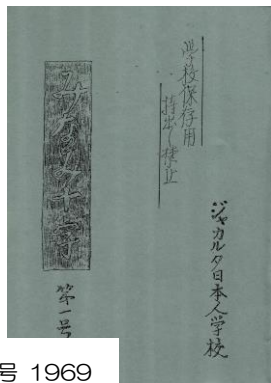 学校保存用
持出し禁止
ジャカルタ日本人学校
第一号
号 1969